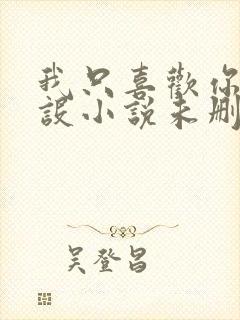 我只喜歡你
設小說未刪
吳登昌